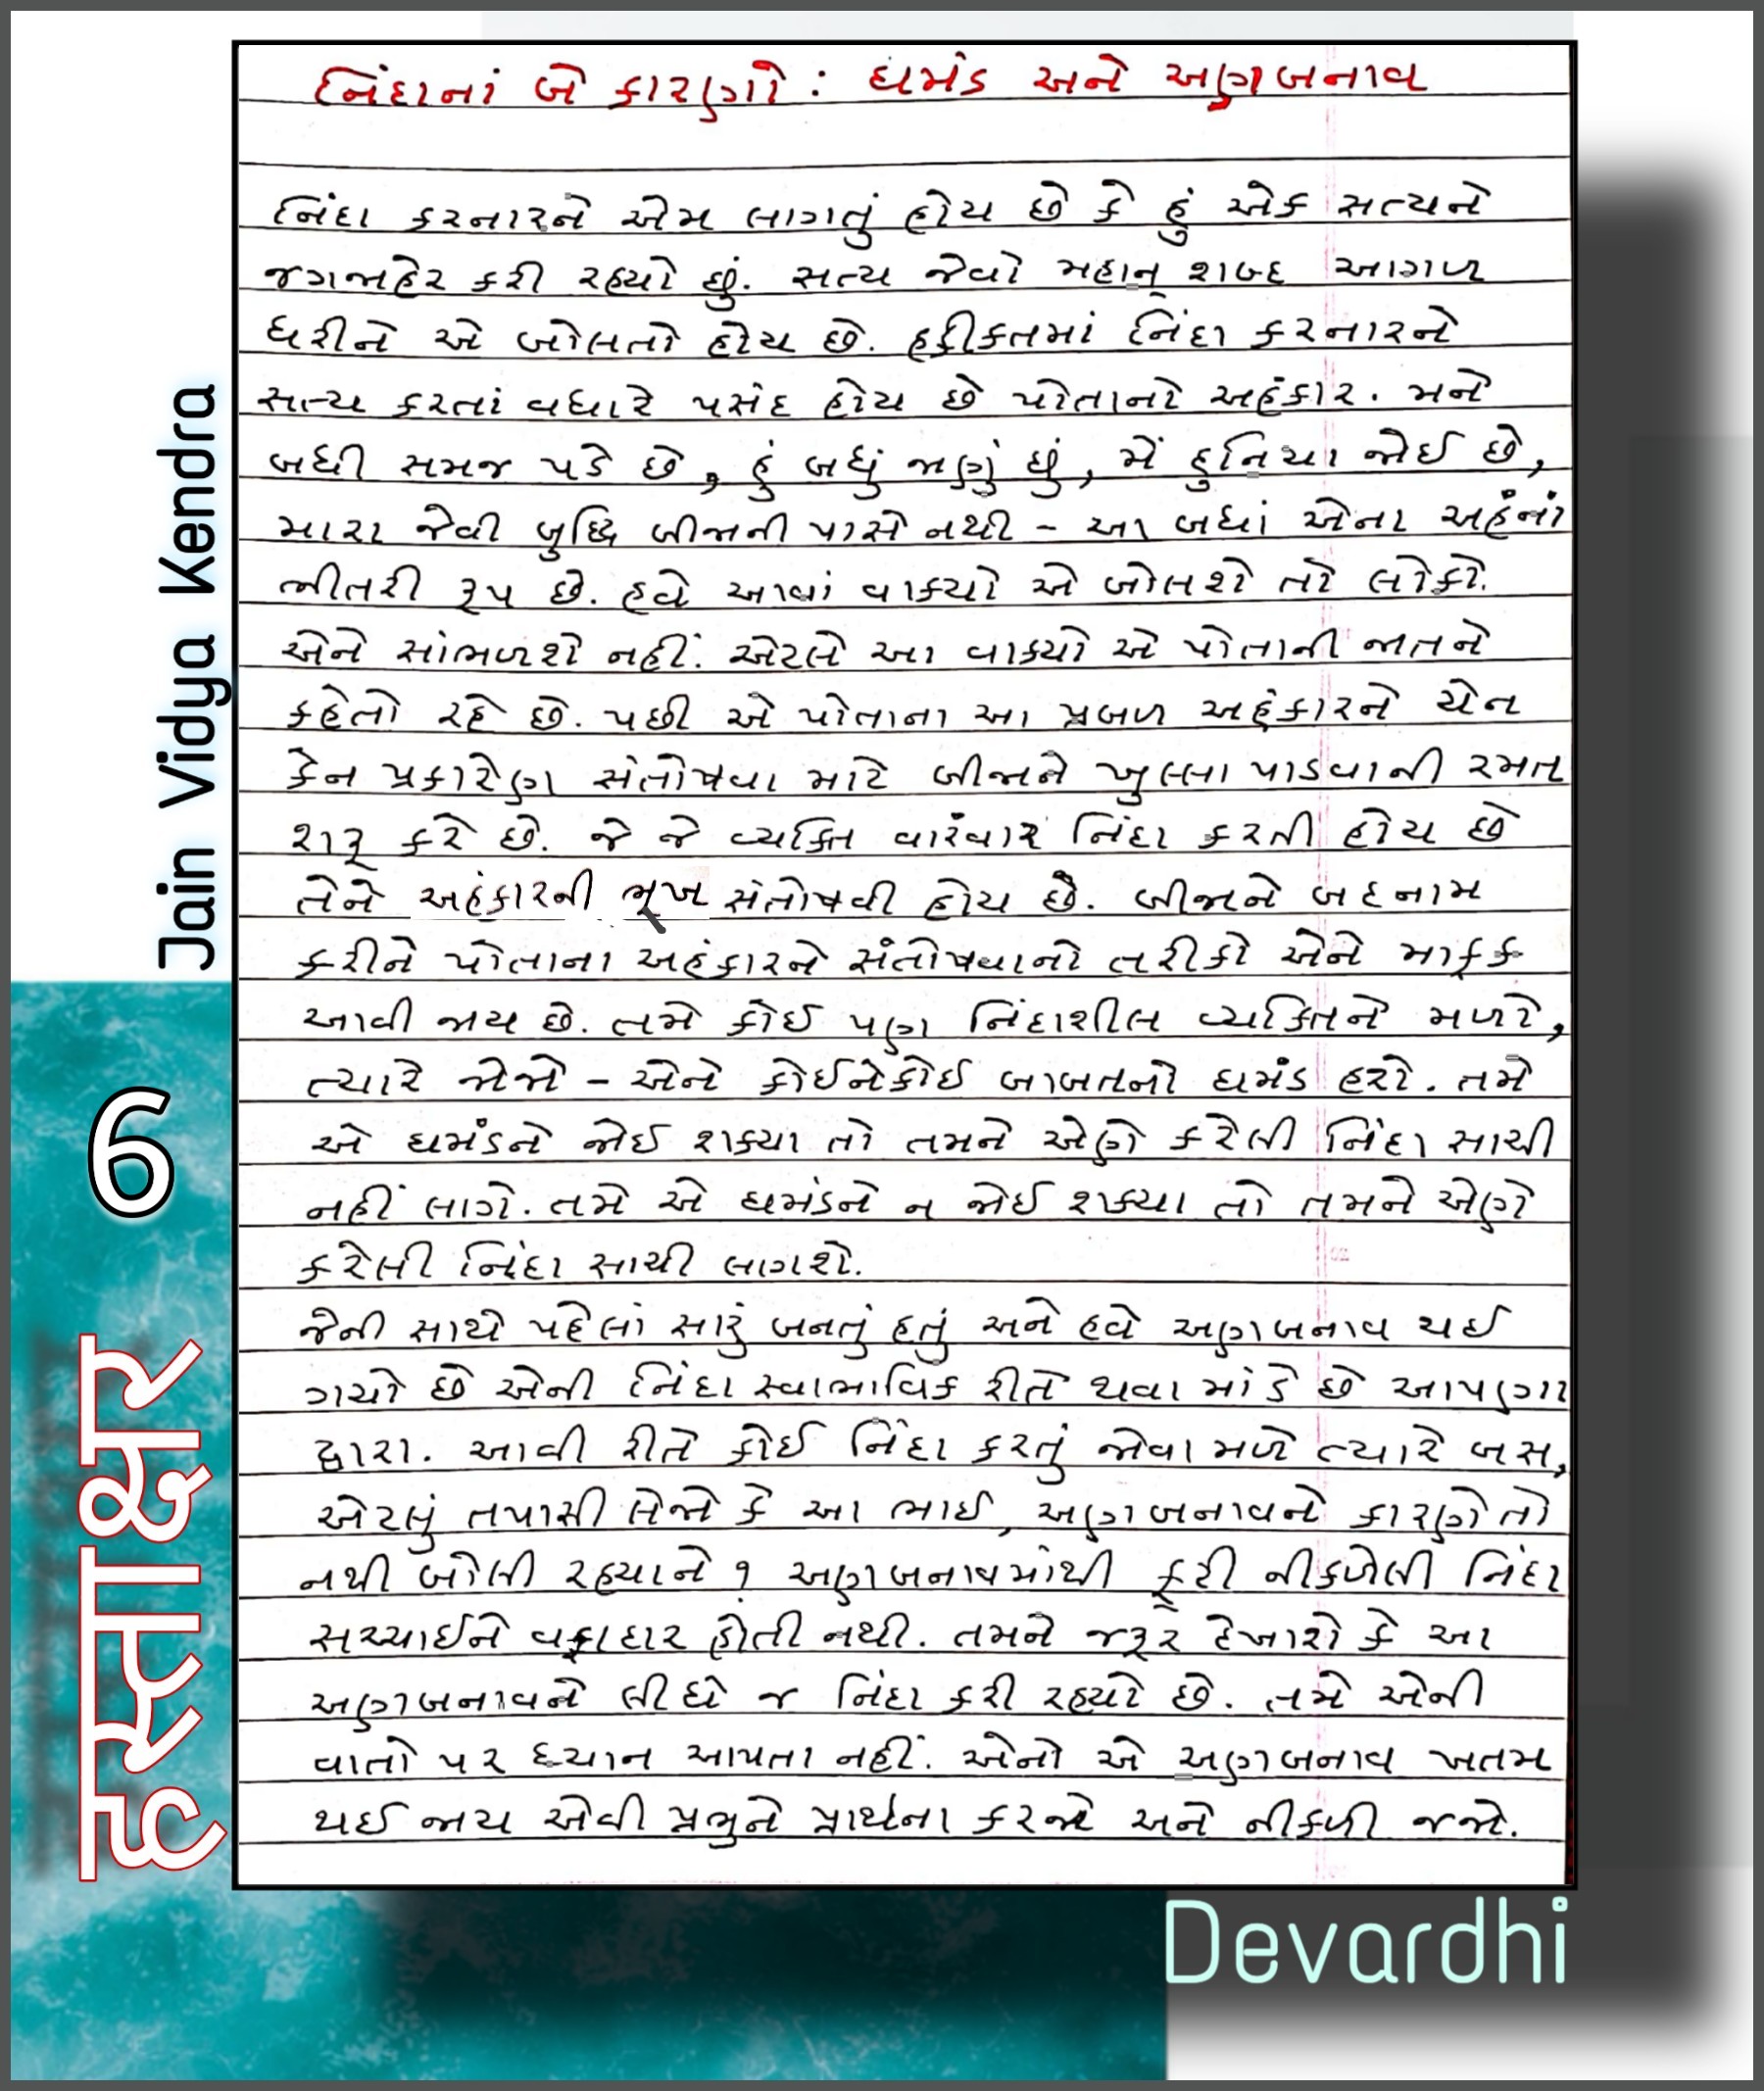 નિંદાનાં બે કારણો : ઘમંડ અને અણબનાવ
નિંદા કરનારને એમ લાગતું હોય છે કે હું એક સત્યને
જગજાહેર કરી રહ્યો છું. સત્ય જેવો મહાન્ શબ્દ આગળ
ધરીને એ બોલતો હોય છે. હકીકતમાં નિંદા કરનારને
સત્ય કરતાં વધારે પસંદ હોય છે પોતાનો અહંકાર. મને
બધી સમજ પડે છે, હું બધું જાણું છું, મેં દુનિયા જોઈ છે,
મારા જેવી બુદ્ધિ બીજાની પાસે નથી – આ બધાં એના અહંનાં
ભીતરી રૂપ છે. હવે આવાં વાક્યો એ બોલશે તો લોકો
એને સાંભળશે નહીં. એટલે આ વાક્યો એ પોતાની જાતને
કહેતો રહે છે. પછી એ પોતાના આ પ્રબળ અહંકારને યેન
કેન પ્રકારેણ સંતોષવા માટે બીજાને ખુલ્લા પાડવાની રમત
શરૂ કરે છે. જે જે વ્યક્તિ વારંવાર નિંદા કરતી હોય છે
તેને અહંકારની ભૂખ સંતોષવી હોય છે. બીજાને બદનામ
કરીને પોતાના અહંકારને સંતોષવાનો તરીકો એને માફક
આવી જાય છે. તમે કોઈ પણ નિંદાશીલ વ્યક્તિને મળો,
ત્યારે જોજો – એને કોઈનેકોઈ બાબતનો ઘમંડ હશે. તમે
એ ઘમંડને જોઈ શક્યા તો તમને એણે કરેલી નિંદા સાચી
નહીં લાગે. તમે એ ઘમંડને ન જોઈ શક્યા તો તમને એણે
કરેલી નિંદા સાચી લાગશે.
જેની સાથે પહેલાં સારું બનતું હતું અને હવે અણબનાવ થઈ
ગયો છે એની નિંદા સ્વાભાવિક રીતે થવા માંડે છે આપણા
દ્વારા. આવી રીતે કોઈ નિંદા કરતું જોવા મળે ત્યારે બસ,
એટલું તપાસી લેજો કે આ ભાઈ, અણબનાવને કારણે તો
નથી બોલી રહ્યાને ? અણબનાવમાંથી ફૂટી નીકળેલી નિંદા
સચ્ચાઈને વફાદાર હોતી નથી. તમને જરૂર દેખાશે કે આ
અણબનાવને લીધે જ નિંદા કરી રહ્યો છે. તમે એની
વાતો પર ધ્યાન આપતા નહીં. એનો એ અણબનાવ ખતમ
થઈ જાય એવી પ્રભુને પ્રાર્થના કરજો અને નીકળી જજો.
Jain Vidya Kendra
6
हस्ताक्षर
Devardhi